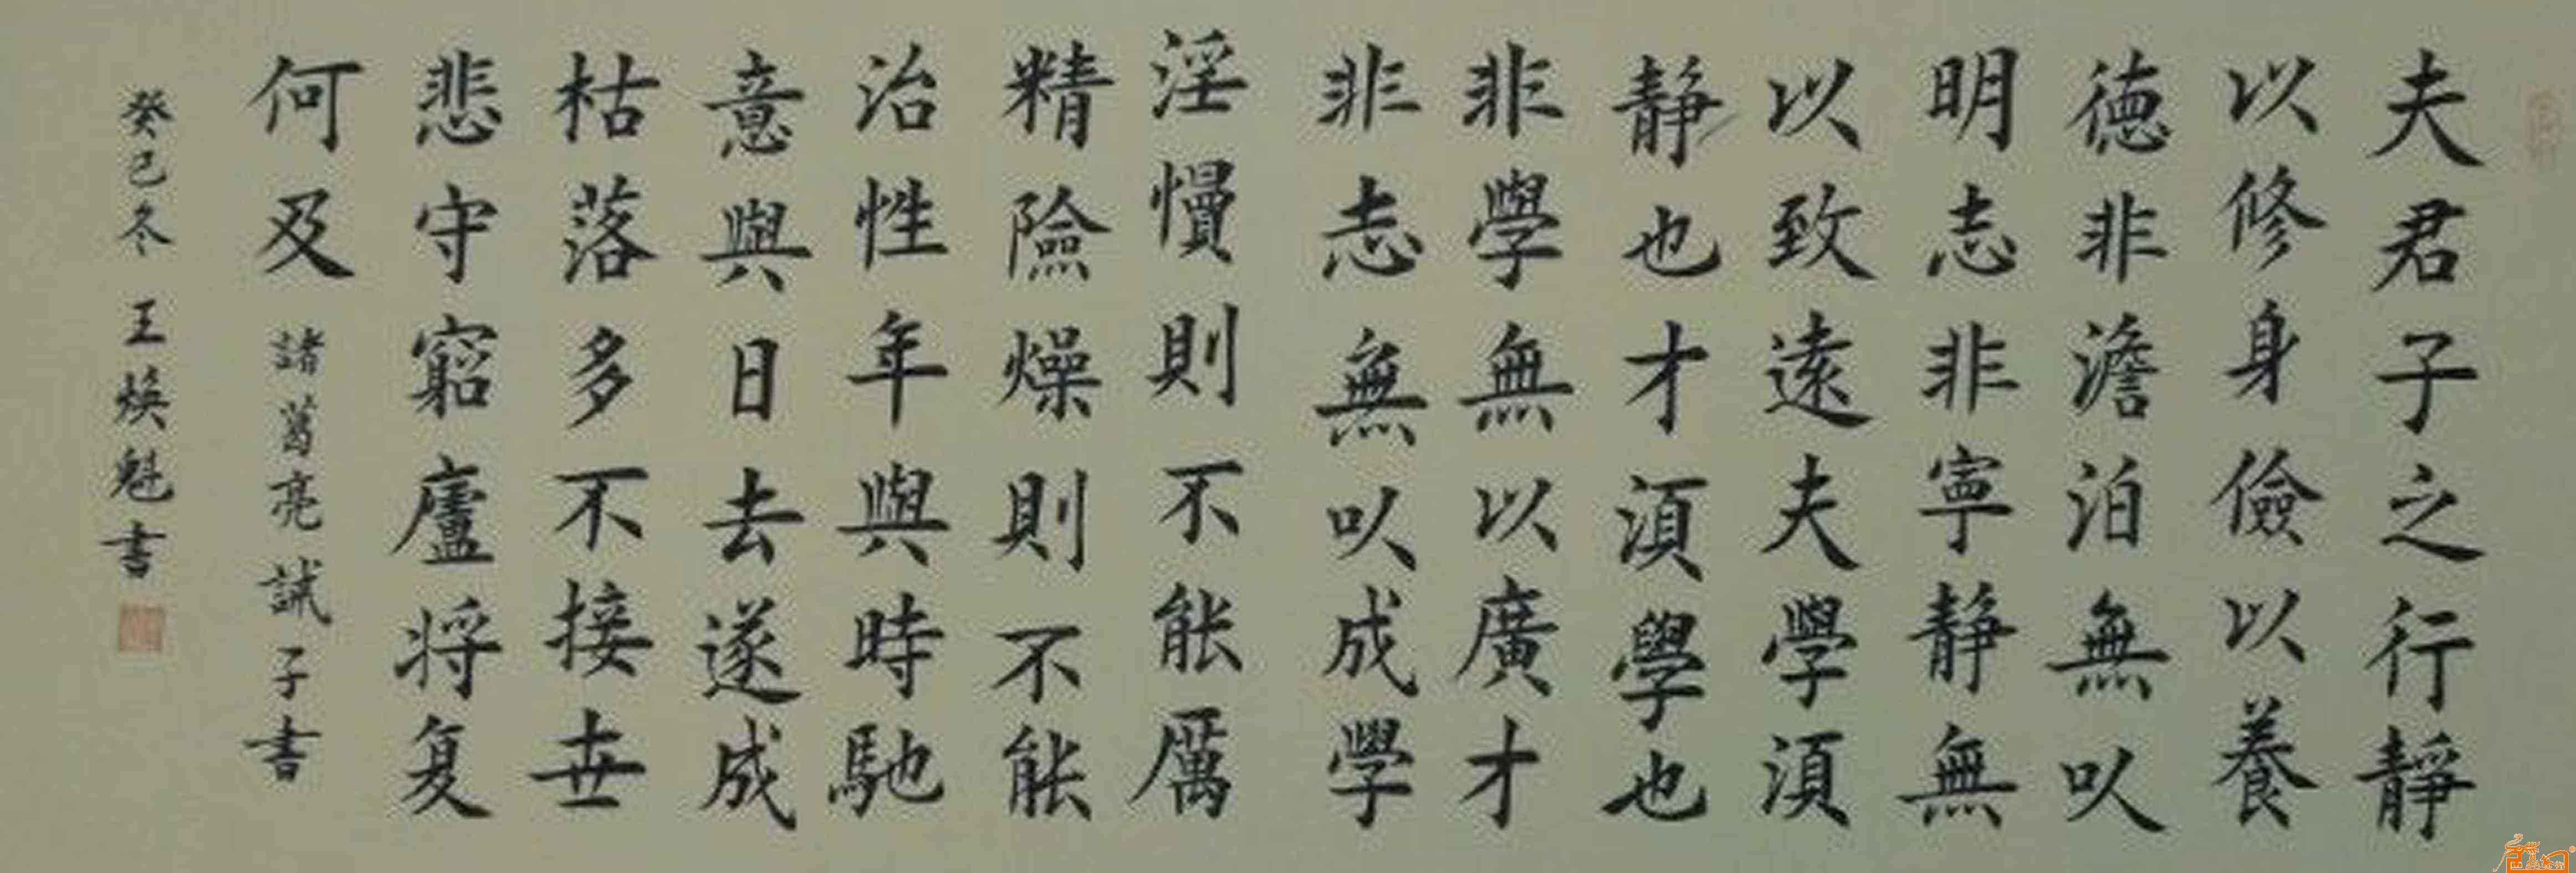 夫君子之行靜
以修身儉以養
德非澹泊無以
明志非寧靜無
以致遠夫學須
靜也才須學也
非學無以廣才
非志無以成學
淫慢則不能厲
精險燥則不能
治性年與時馳
意與日去遂成
枯落多不接世
悲守窮廬将复
何及
諸葛亮誡子書
癸巳冬 王焕魁書